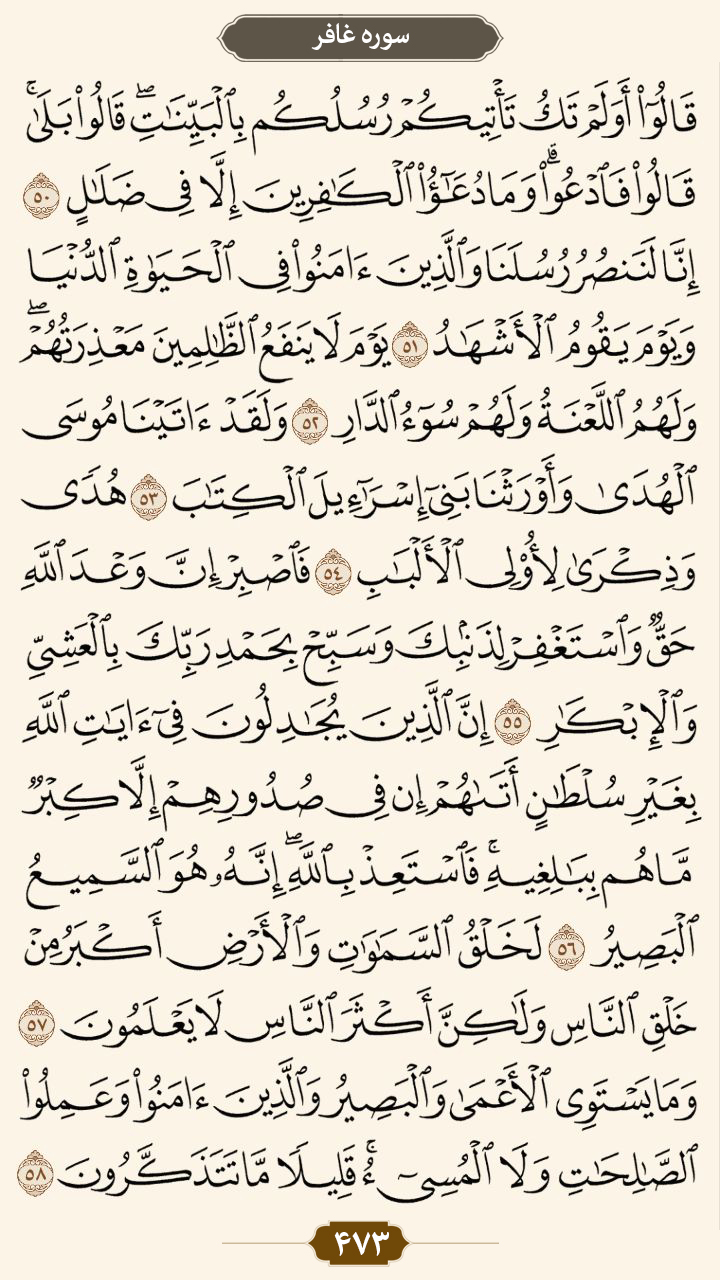 سوره غافر
قَالُوٓا۟ أَوَلَمْ تَكُ تَأْتِيكُمْ رُسُلُكُم بِٱلْبَيِّنَـٰتِ ۖ قَالُوا۟ بَلَىٰ ۚ
قَالُوا۟ فَٱدْعُوا۟ ۗ وَمَا دُعَـٰٓؤُا۟ ٱلْكَـٰفِرِينَ إِلَّا فِى ضَلَـٰلٍ ٥٠
إِنَّا لَنَنصُرُ رُسُلَنَا وَٱلَّذِينَ ءَامَنُوا۟ فِى ٱلْحَيَوٰةِ ٱلدُّنْيَا
وَيَوْمَ يَقُومُ ٱلْأَشْهَـٰدُ ٥١ يَوْمَ لَا يَنفَعُ ٱلظَّـٰلِمِينَ مَعْذِرَتُهُمْ ۖ
وَلَهُمُ ٱللَّعْنَةُ وَلَهُمْ سُوٓءُ ٱلدَّارِ ٥٢ وَلَقَدْ ءَاتَيْنَا مُوسَى
ٱلْهُدَىٰ وَأَوْرَثْنَا بَنِىٓ إِسْرَٰٓءِيلَ ٱلْكِتَـٰبَ ٥٣ هُدًى
وَذِكْرَىٰ لِأُو۟لِى ٱلْأَلْبَـٰبِ ٥٤ فَٱصْبِرْ إِنَّ وَعْدَ ٱللَّهِ
حَقٌّ وَٱسْتَغْفِرْ لِذَنۢبِكَ وَسَبِّحْ بِحَمْدِ رَبِّكَ بِٱلْعَشِىِّ
وَٱلْإِبْكَـٰرِ ٥٥ إِنَّ ٱلَّذِينَ يُجَـٰدِلُونَ فِىٓ ءَايَـٰتِ ٱللَّهِ
بِغَيْرِ سُلْطَـٰنٍ أَتَىٰهُمْ إِن فِى صُدُورِهِمْ إِلَّا كِبْرٌ
مَّا هُم بِبَـٰلِغِيهِ ۚ فَٱسْتَعِذْ بِٱللَّهِ ۖ إِنَّهُۥ هُوَ ٱلسَّمِيعُ
ٱلْبَصِيرُ ٥٦ لَخَلْقُ ٱلسَّمَـٰوَٰتِ وَٱلْأَرْضِ أَكْبَرُ مِنْ
خَلْقِ ٱلنَّاسِ وَلَـٰكِنَّ أَكْثَرَ ٱلنَّاسِ لَا يَعْلَمُونَ ٥٧
وَمَا يَسْتَوِى ٱلْأَعْمَىٰ وَٱلْبَصِيرُ وَٱلَّذِينَ ءَامَنُوا۟ وَعَمِلُوا۟
ٱلصَّـٰلِحَـٰتِ وَلَا ٱلْمُسِىٓءُ ۚ قَلِيلًا مَّا تَتَذَكَّرُونَ ٥٨
۴۷۳